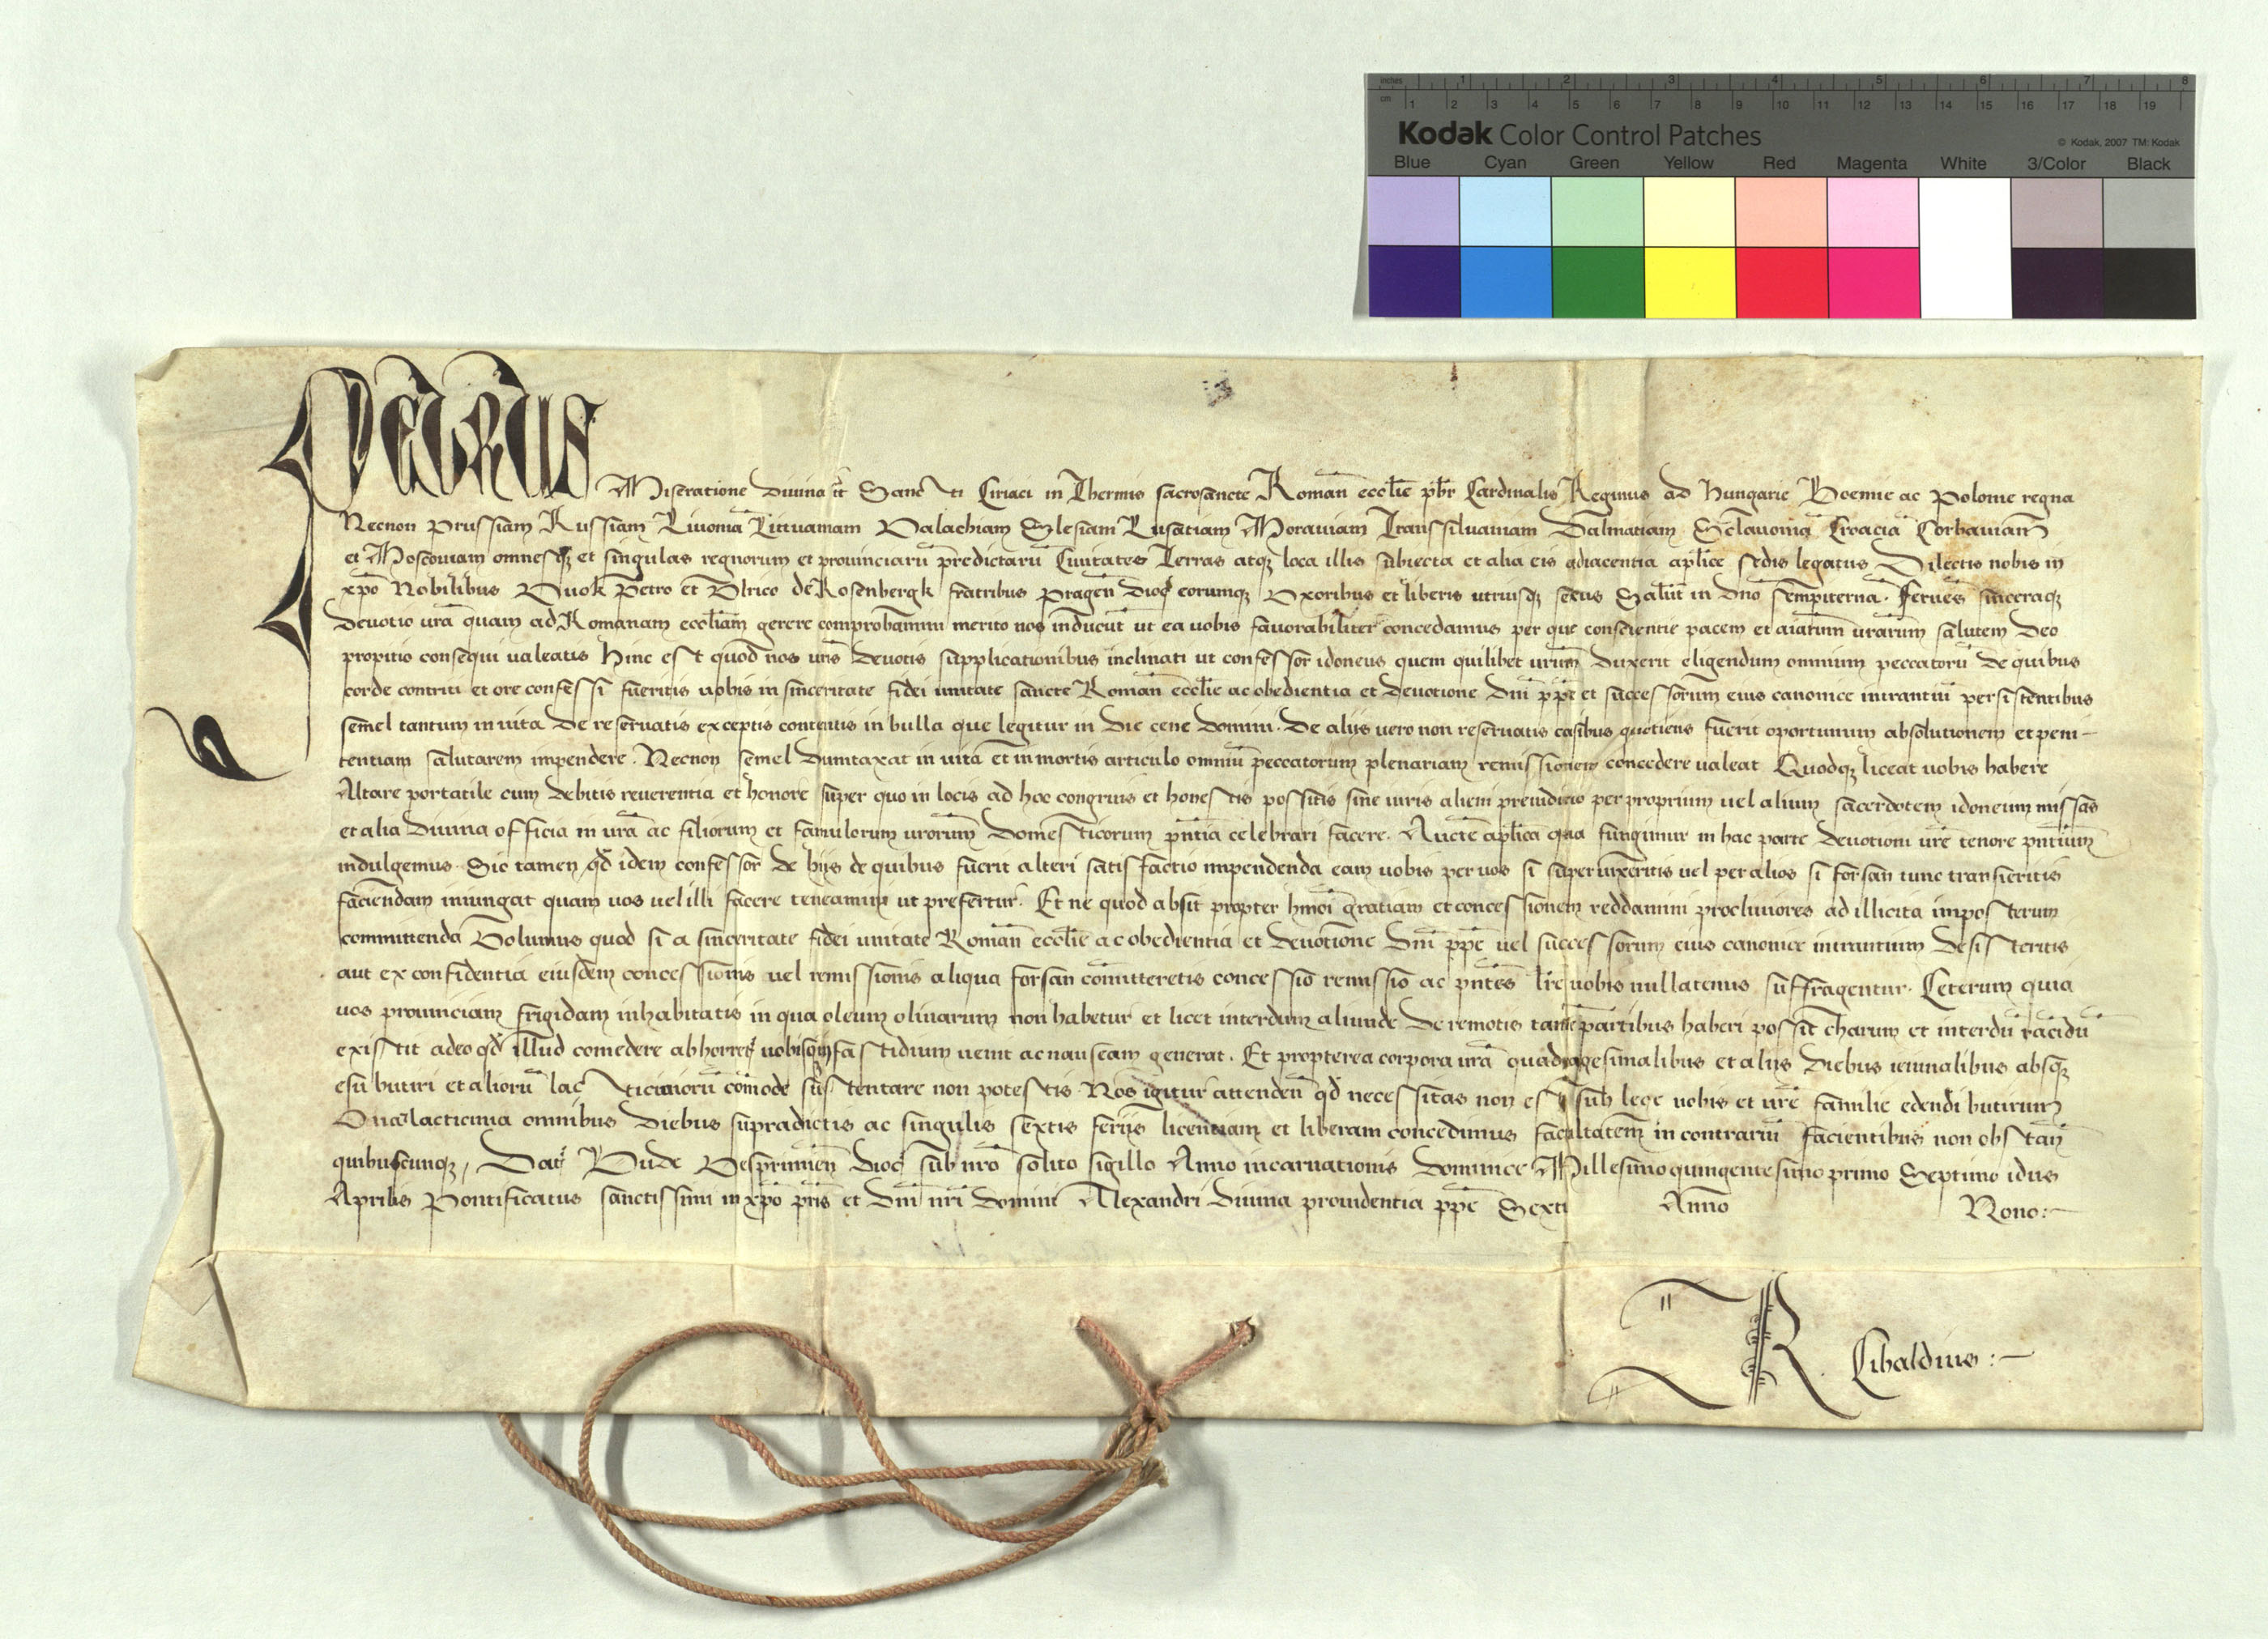 inches 1 2 3 4 5 6 7 8
cm 1 2 3 4 5 6 7 8 9 10 11 12 13 14 15 16 17 18 19
Kodak Color Control Patches © Kodak, 2007 TM: Kodak
Blue Cyan Green Yellow Red Magenta White 3/Color Black
Petrus Miseratione divina tt̃ Sancti Ciriaci in Thermis sacrosancte Romañ eccl̃ie p̃br Cardinalis Reginus ad Hungarie Boemie ac Polonie regna
Necnon Prussiam Russiam Livoniã Lituaniam Valachiam Slesiam Lusatiam Moraviam Transsilvaniam Dalmatiam Sclavoniã Croaciã Corbaviam̃
et Moscoviam omnesqꝫ et singulas regnorum et provinciarũ predictarũ Civitates Terras atqꝫ loca illis subiecta et alia eis adiacentia ap̃lice sedis legatus Dilectis nobis in
xp̃o Nobilibus Vuok Petro et Ulrico de Rosenbergk fratribus Prageñ dioc̃ eorumqꝫ Uxoribus et liberis utriusqꝫ sexus Salut̃ in dño sempiternã. Fervens sinceraqꝫ
devotio vrã quam ad Romanam eccl̃iam gerere comprobamini merito nos inducũt ut ea vobis favorabiliter concedamus per que conscientie pacem et aĩarum vrãrum salutem deo
propitio consequi valeatis hinc est quod nos vr̃is devotis supplicationibus inclinati ut confessor idoneus quem quilibet vrũm duxerit eligendum omnium peccatorũ de quibus
corde contriti et ore confessi fueritis vobis in sinceritate fidei unitate sancte Romañ eccl̃ie ac obedientia et devotione dñi p̃pe et successorum eius canonice intrantiũ persistentibus
semel tantum in vita de reservatis exceptis contentis in bulla que legitur in die cene domini. de alijs vero non reservatis casibus quotiens fuerit oportunum absolutionem et peni-
tentiam salutarem impendere. Necnon semel dumtaxat in vita et in mortis articulo omniũ peccatorum plenariam remissionem concedere valeat Quodqꝫ liceat vobis habere
Altare portatile cum debitis reverentia et honore super quo in locis ad hoc congruis et honestis possitis sine iuris alieni preiudicio per proprium vel alium sacerdotem idoneum missas
et alia divina officia in vrã ac filiorum et famulorum vrorum̃ domesticorum pñtia celebrari facere. Aucte ap̃lica qua fungimur in hac parte devotioni vrẽ tenore pñtium̃
indulgemus. Sic tamen qd̃ idem confessor de hijs de quibus fuerit alteri satisfactio impendenda eam vobis per vos si supervixeritis vel per alios si forsan tunc transieritis
faciendam iniungat quam vos vel illi facere teneamini ut prefertur. Et ne quod absit propter hm̃oi gratiam et concessionem reddamini procliviores ad illicita imposterum
committenda Volumus quod si a sinceritate fidei unitate Romañ eccl̃ie ac obedientia et devotione dñi p̃pe vel successorum eius canonice intrantium desisteritis
aut ex confidentia eiusdem concessionis vel remissionis aliqua forsan com̃itteretis concessio remissio ac pñtes lrẽ vobis nullatenus suffragentur. Ceterum quia
vos provinciam frigidam inhabitatis in qua oleum olivarum non habetur et licet interdum aliunde de remotis tamẽ partibus haberi possit charum et interdũ racidũ
existit adeo qd̃ illud comedere abhorret vobisqꝫ in fastidium venit ac nauseam generat. Et propterea corpora vrã quadragesimalibus et alijs diebus ieiunalibus absqꝫ
esu butiri et aliorũ lacticiniorũ com̃ode sustentare non potestis. Nos igitur attendeñ qd̃ necessitas non est sub lege vobis et vrẽ familie edendi butirum
Ova lacticinia omnibus diebus supradictis ac singulis sextis ferijs licentiam et liberam concedimus facultatem in contrariũ facientibus non obstañ
quibuscunqꝫ, Dat̃ Bude Vesprimieñ dioc̃ sub nr̃o solito sigillo Anno incarnationis dominice Millesimoquingentesimo primo Septimo idus
Aprilis Pontificatus sanctissimi in xp̃o pr̃is et dñi nr̃i domini Alexandri divina providentia p̃pe Sexti Anno Nono:-
R. Cibaldius:-